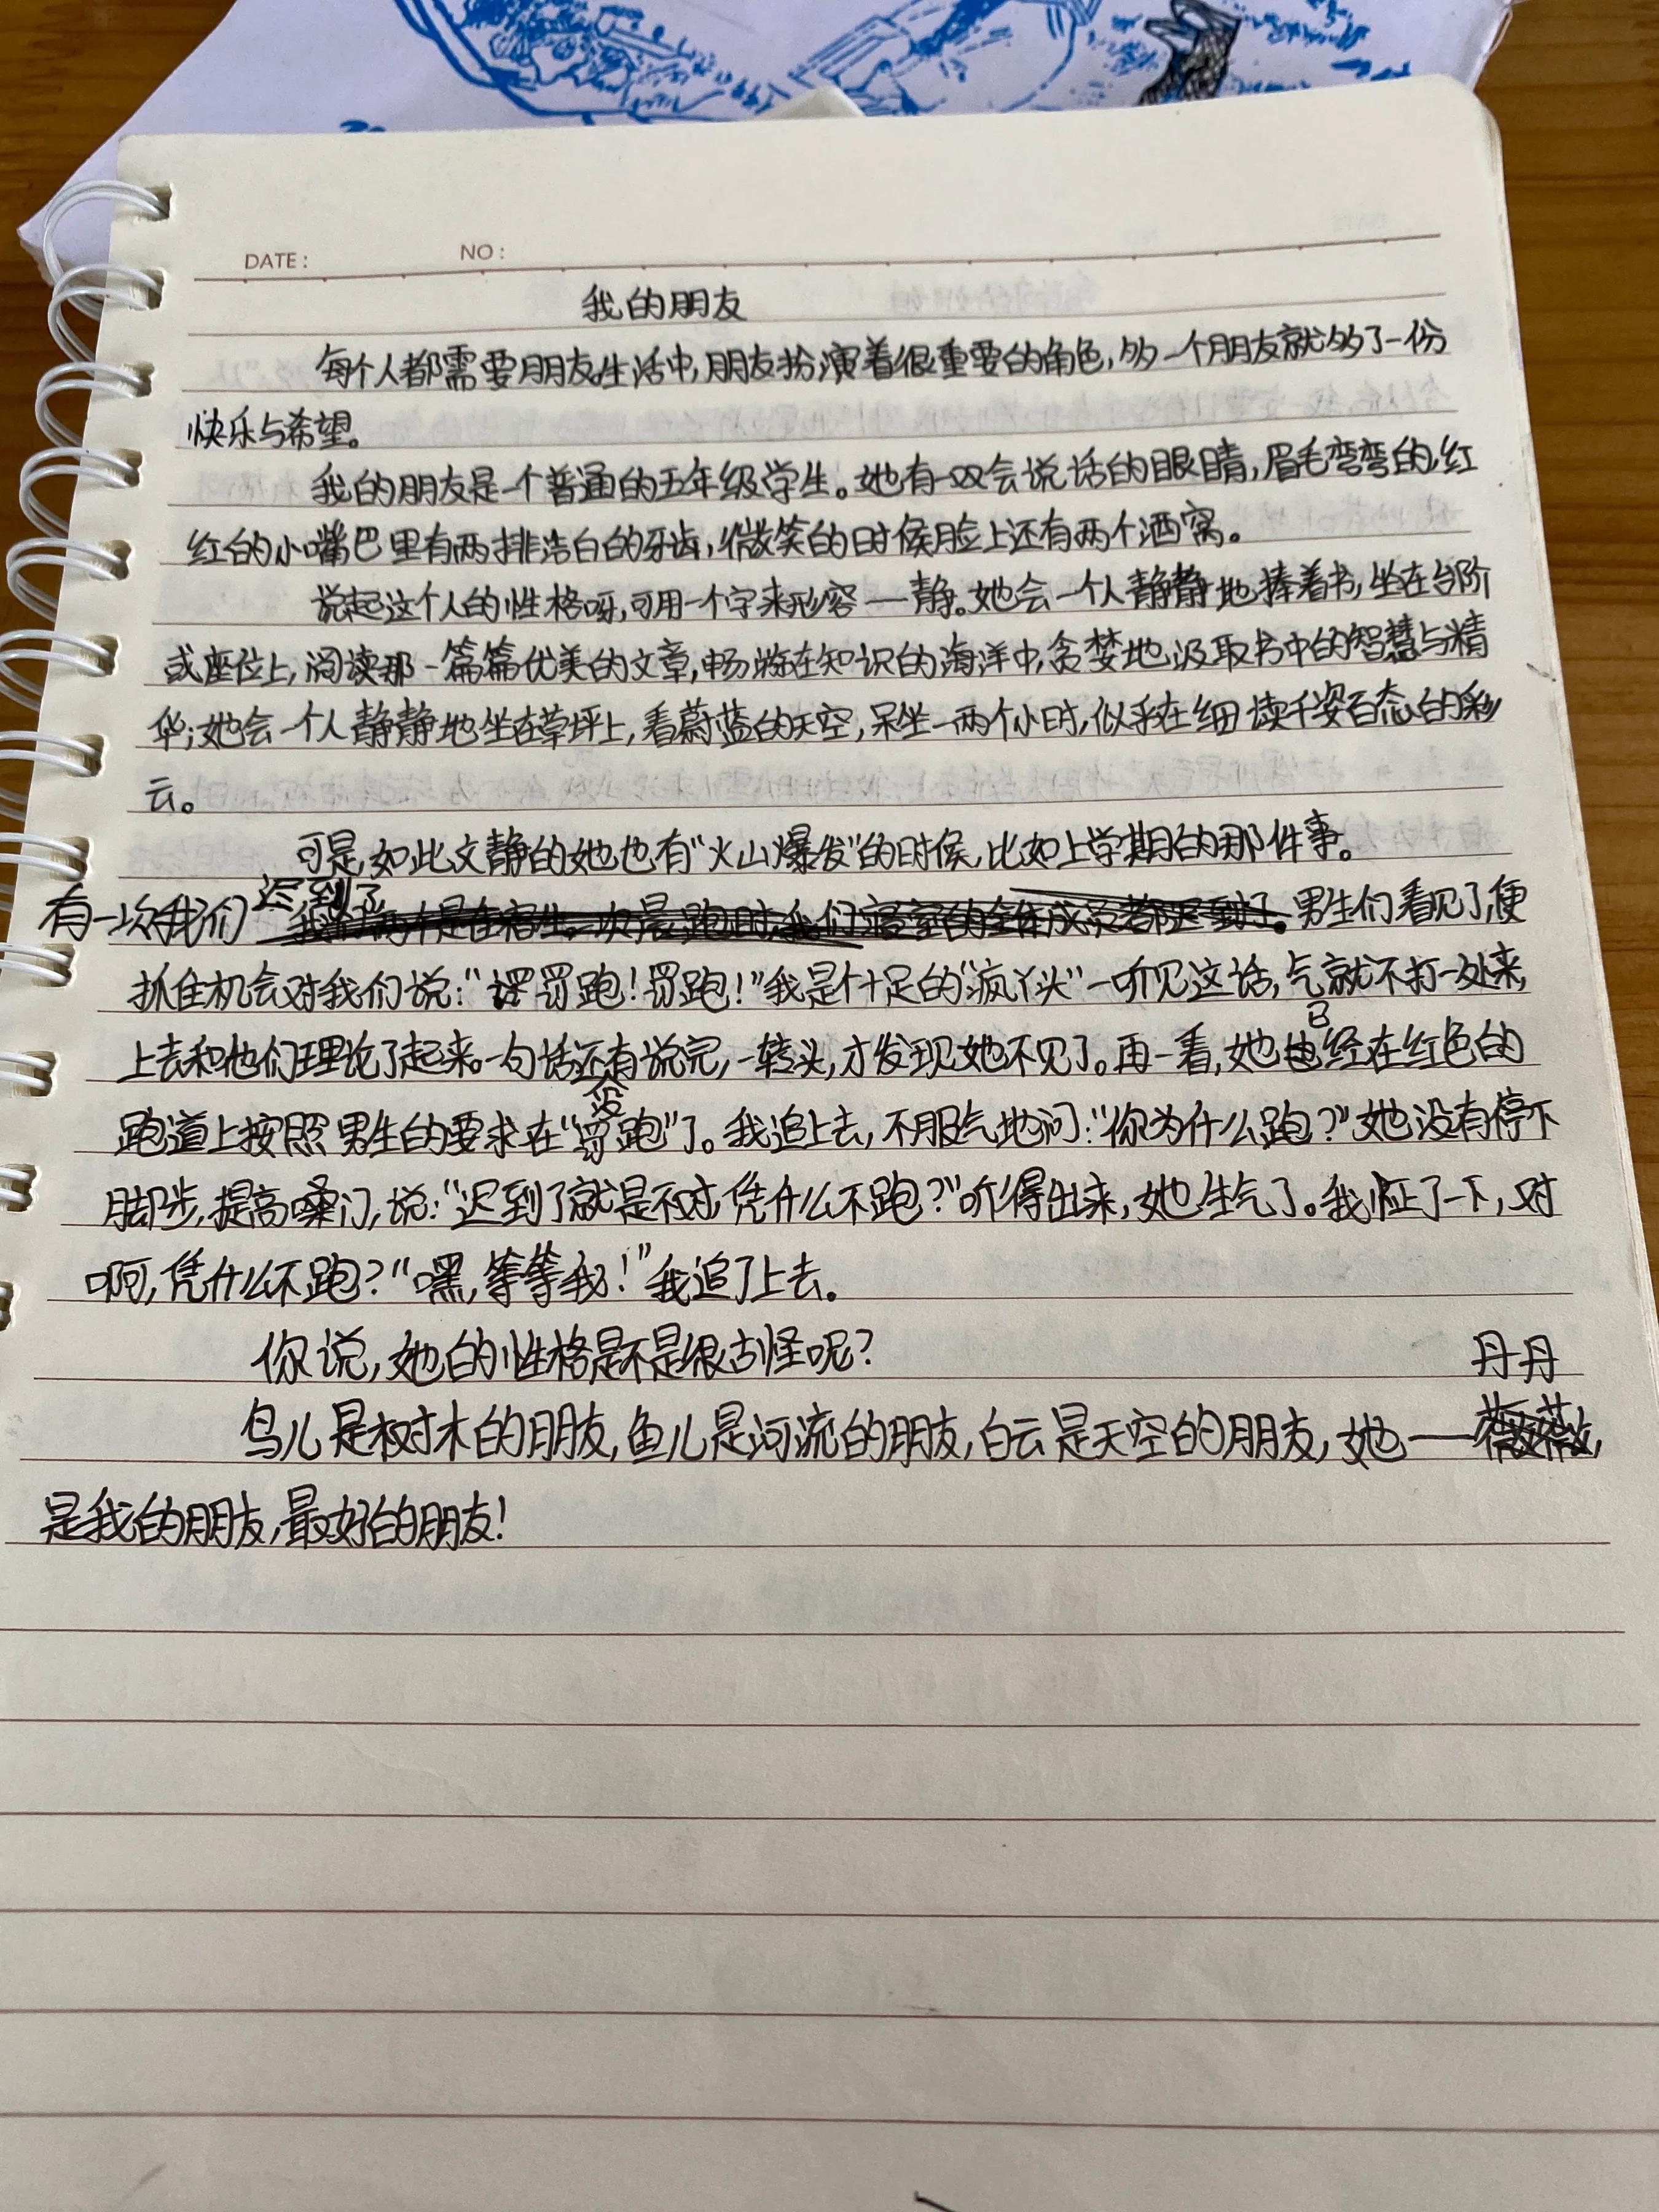 DATE: NO:
我的朋友
每个人都需要朋友生活中,朋友扮演着很重要的角色,多一个朋友就多了一份
快乐与希望。
我的朋友是一个普通的五年级学生。她有一双会说话的眼睛,眉毛弯弯的,红
红的小嘴巴里有两排洁白的牙齿,微笑的时候脸上还有两个酒窝。
说起这个人的性格呀,可用一个字来形容——静。她会一个人静静地捧着书,坐在台阶
或座位上,阅读那一篇篇优美的文章,畅游在知识的海洋中,贪婪地汲取书中的智慧与精
华;她会一个人静静地坐在草坪上,看蔚蓝的天空,呆坐一两个小时,似乎在细读千姿百态的彩
云。
可是,如此文静的她也有“火山爆发”的时候,比如上学期的那件事。
有一次我们迟到了男生们看见了,便
抓住机会对我们说:“罚跑!罚跑!”我是个十足的“疯丫头”一听见这话,气就不打一处来,
上去和他们理论了起来。一句话还没有说完,一转头,才发现她不见了。再一看,她已经在红色的
跑道上按照男生的要求在“罚跑”了。我追上去,不服气地问:“你为什么跑?”她没有停下
脚步,提高嗓门,说:“迟到了就是不对,凭什么不跑?”听得出来,她生气了。我怔了一下,对
啊,凭什么不跑?“嘿,等等我!”我追了上去。
你说,她的性格是不是很古怪呢?
鸟儿是树木的朋友,鱼儿是河流的朋友,白云是天空的朋友,她——丹丹,
是我的朋友,最好的朋友!